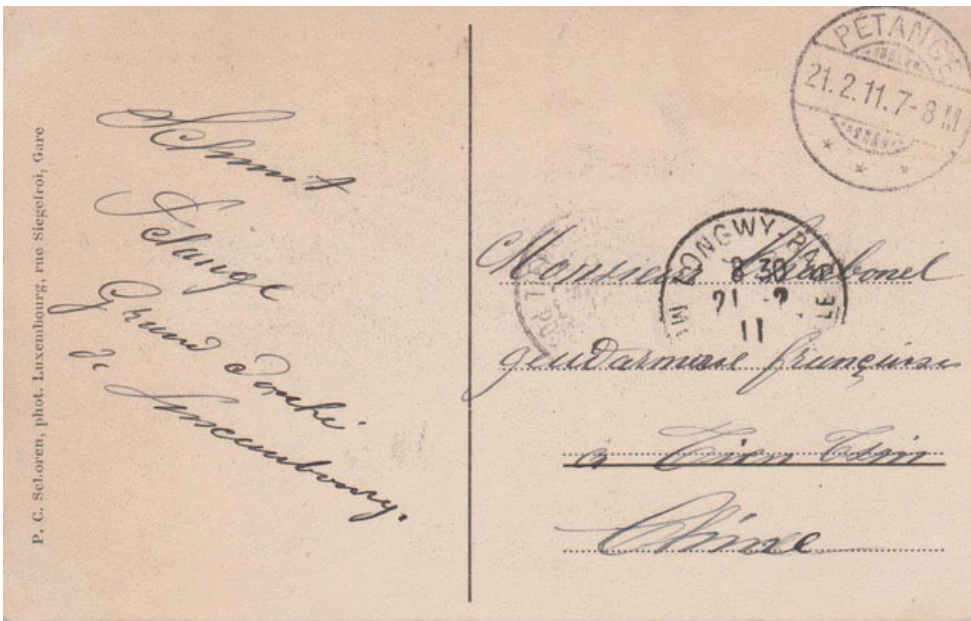 P. C. Schoren, phot. Luxembourg, rue Siegefroi, Gare
Schmit
Grand Duché
de Luxembourg.
PETANGE
21.2.11.7-8 M
LONGWY-BAS
8 30
21 2
11
Monsieur
gendarmerie française
à Tien Tsin
Chine